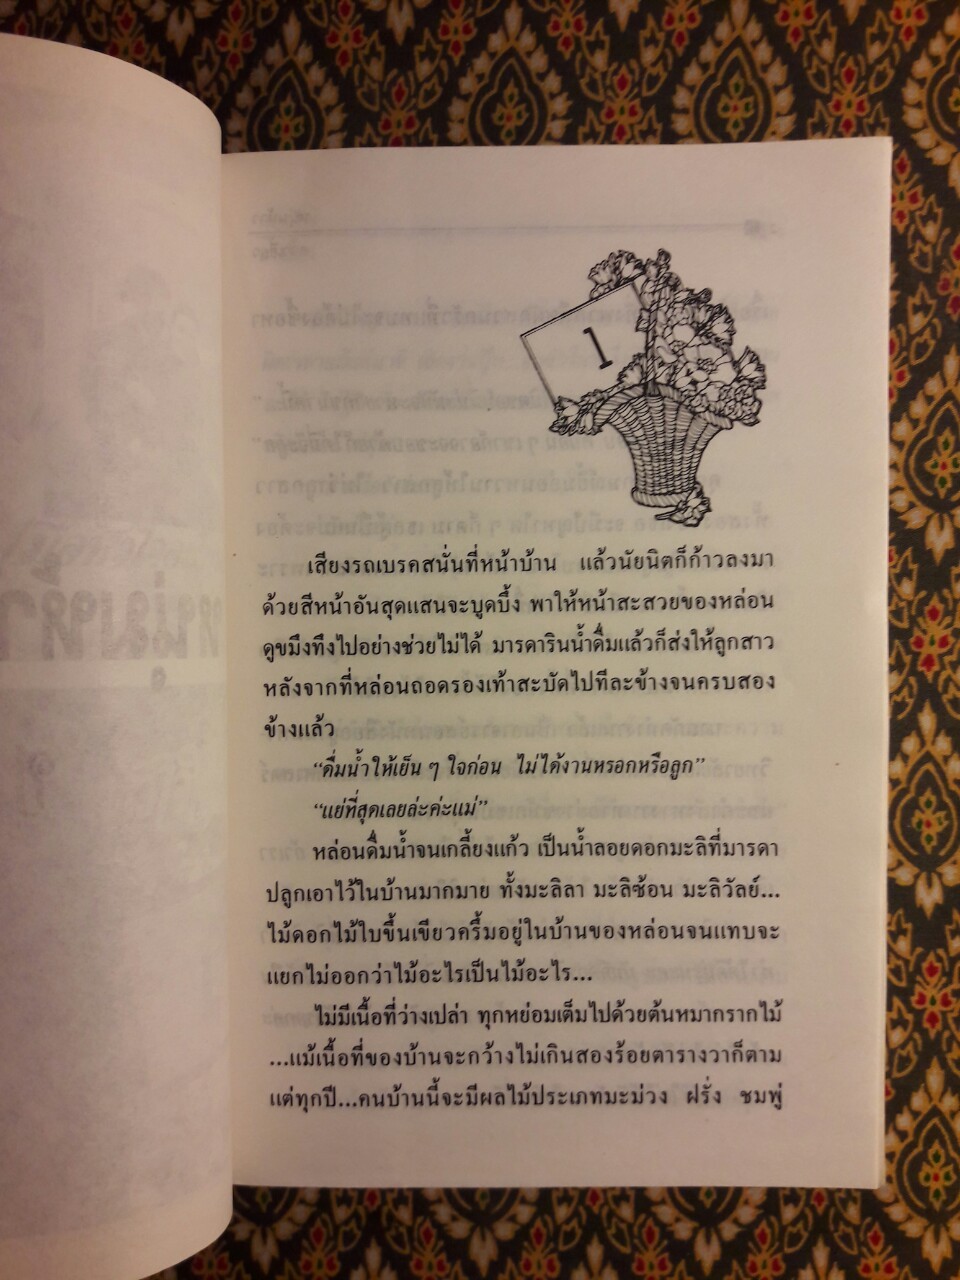 1
เสียงรถเบรคสนั่นที่หน้าบ้าน แล้วนัยนิตก็ก้าวลงมา
ด้วยสีหน้าอันสุดแสนจะบูดบึ้ง พาให้หน้าสะสวยของหล่อน
ดูขมึงทึงไปอย่างช่วยไม่ได้ มารดารินน้ำดื่มแล้วก็ส่งให้ลูกสาว
หลังจากที่หล่อนถอดรองเท้าสะบัดไปทีละข้างจนครบสอง
ข้างแล้ว
“ดื่มน้ำให้เย็น ๆ ใจก่อน ไม่ได้งานหรอกหรือลูก”
“แย่ที่สุดเลยล่ะค่ะแม่”
หล่อนดื่มน้ำจนเกลี้ยงแก้ว เป็นน้ำลอยดอกมะลิที่มารดา
ปลูกเอาไว้ในบ้านมากมาย ทั้งมะลิลา มะลิซ้อน มะลิวัลย์...
ไม้ดอกไม้ใบขึ้นเขียวครึ้มอยู่ในบ้านของหล่อนจนแทบจะ
แยกไม่ออกว่าไม้อะไรเป็นไม้อะไร...
ไม่มีเนื้อที่ว่างเปล่า ทุกหย่อมเต็มไปด้วยต้นหมากรากไม้
...แม้เนื้อที่ของบ้านจะกว้างไม่เกินสองร้อยตารางวาก็ตาม
แต่ทุกปี...คนบ้านนี้จะมีผลไม้ประเภทมะม่วง ฝรั่ง ชมพู่